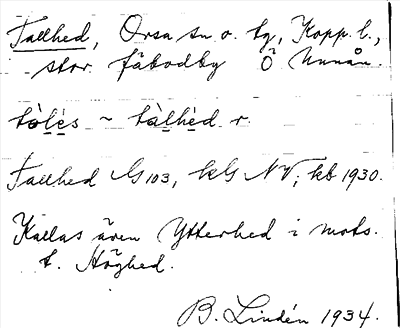 Tallhed, Orsa sn o. tg, Kopp. l.,
stor fäbodby Ö Unnån.
tòlés ~ tàlhéd r.
Tallhed G103, kG NV; kb 1930.
Kallas även Ytterhed i mots.
t. Höghed.
B. Lindén 1934.